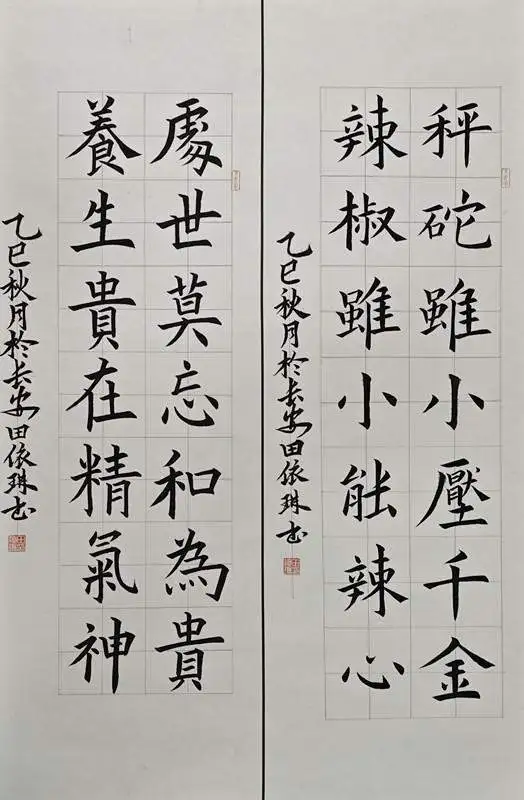 秤砣雖小壓千金
辣椒雖小能辣心
乙巳秋月於长安田依琳书
處世莫忘和為貴
養生貴在精氣神
乙巳秋月於长安田依琳书